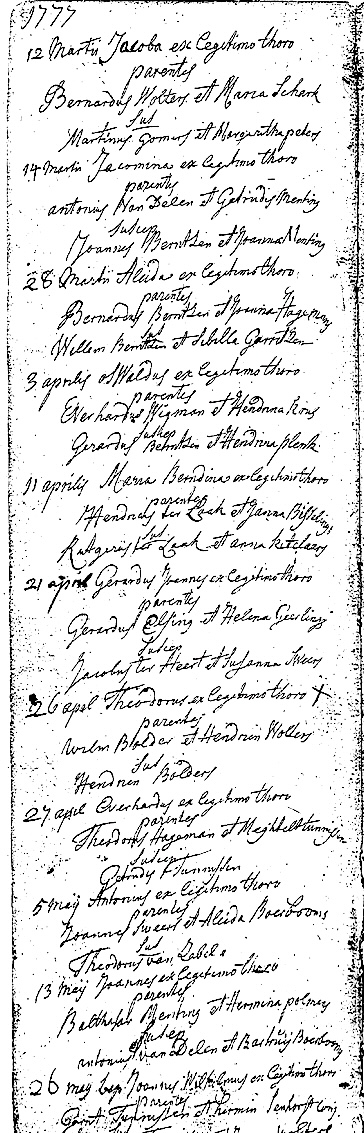 1777
12 Martii Jacoba ex legitimo thoro
parentes
Bernardus Wolters et Maria Schark
Sus
Martinus Gomers et Margaritha peters
14 Martii Jacomina ex legitimo thoro
parentes
antonius Van Delen et Getrudis Menting
Suscep
Joannes Berntzen et Joanna Menting
28 Martii Aleida ex legitimo thoro
parentes
Bernardus Berntzen et Joanna Hageman
Sus
Willem Berntzen et Sibilla Garritzen
3 aprilis osWaldus ex legitimo thoro
parentes
Everhardus Wigman et Hendrina
Suscep
Gerardus Berntzen et Hendrina plenk
11 aprilis Maria Berndina ex legitimo thoro
parentes
Hendricus ter Laak et Janna
Sus
Rutgerus ter Laak et anna Ketelaers
21 april Gerardus Joannes ex legitimo thoro
parentes
Gerardus Elsing et Helena
Suscep
Jacobus ter Heert et Susanna Sweers
26 apel Theodorus ex legitimo thoro +
parentes
Wilm Bolder et Hendrin Wolters
Sus
Hendrin Bolders
27 apel Everhardus ex legitimo thoro
parentes
Theodorus Hageman et
Suscep
Getrudis
5 maij Antonius ex legitimo thoro
parentes
Joannes Sweers et Aleida Boerbooms
Sus
Theodorus van
13 Maij Joannes ex legitimo thoro
parentes
Balthasar Menting et Hermina
Suscep
antonius van Delen et
26 may bap Joannes Wilhelmus ex legitimo thoro
parentes
Garrit et Hermin